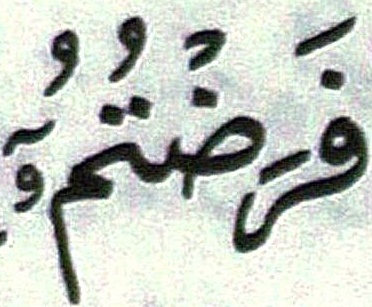 فَرَضْتُمُۥٓ